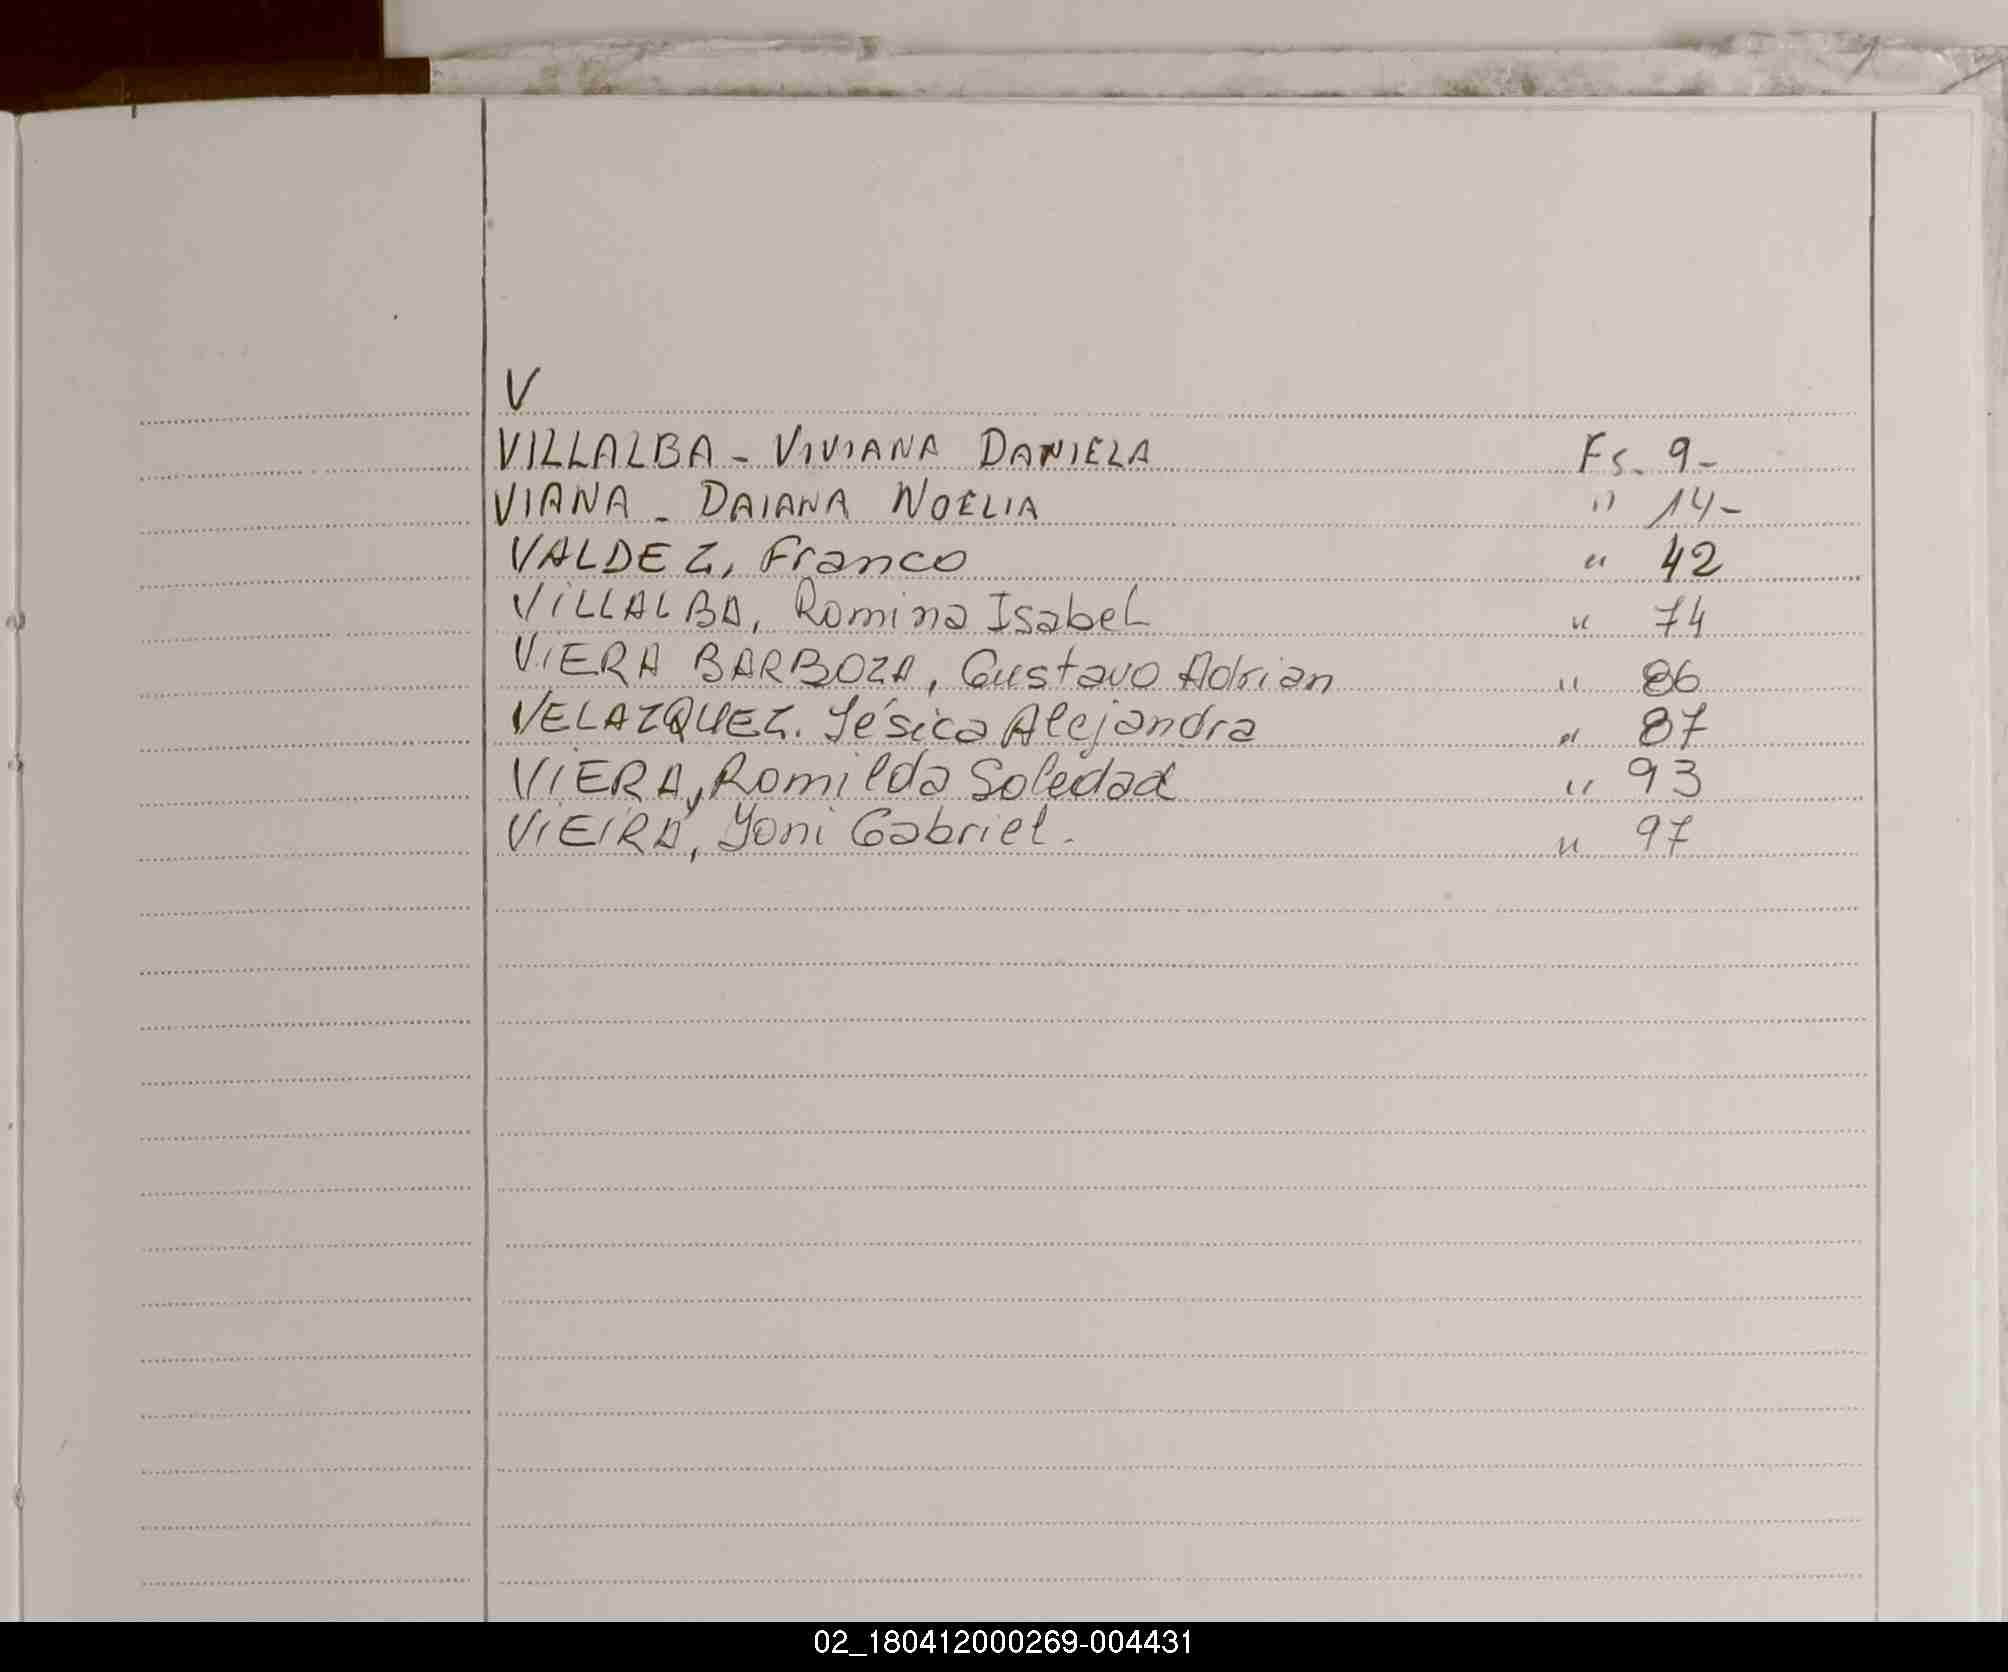 V
VILLALBA - VIVIANA DANIELA Fs. 9-
VIANA - DAIANA NOELIA " 14-
VALDEZ, Franco " 42
VILLALBA, Romina Isabel " 74
VIERA BARBOZA, Gustavo Adrian " 86
VELAZQUEZ. Yésica Alejandra " 87
VIERA, Romilda Soledad " 93
VIEIRA, Yoni Gabriel. " 97
02_180412000269-004431